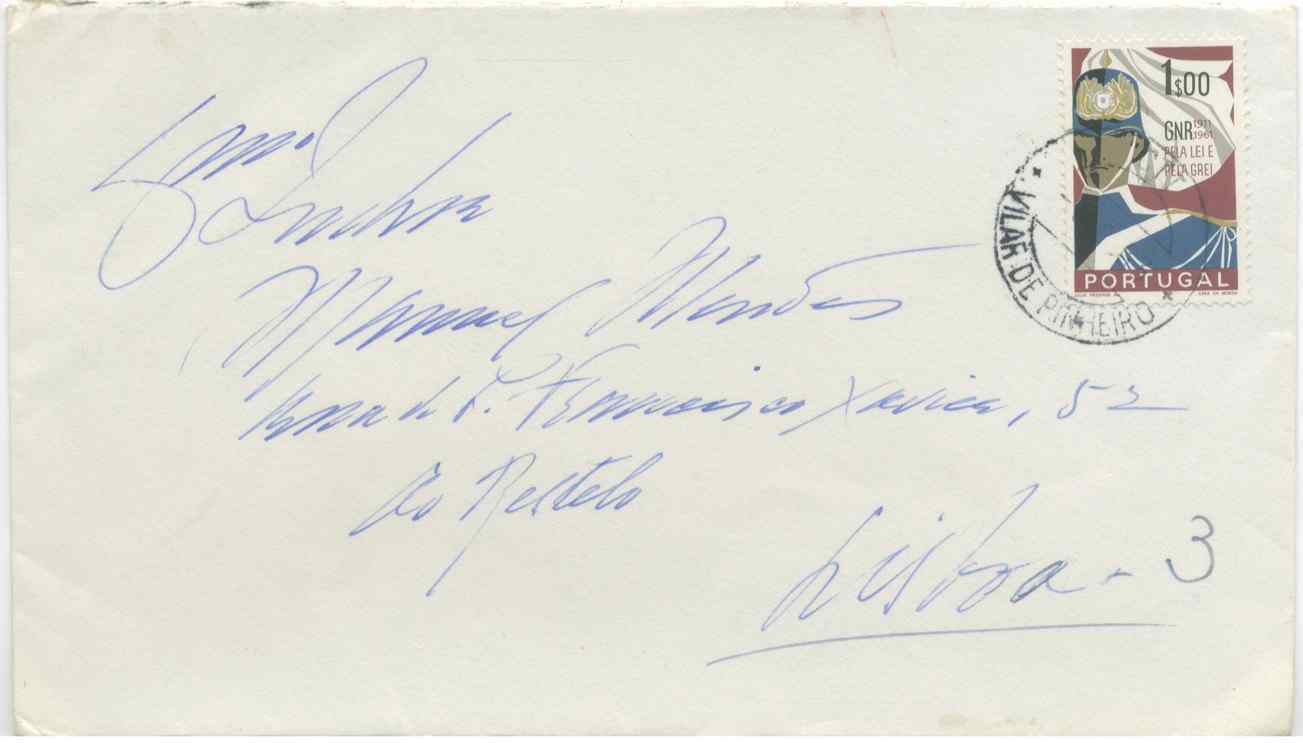 Exmo.
Senhor
Manuel Mendes
Rua de S. Francisco Xavier, 52
Ao Restelo
Lisboa - 3
1$00
GNR 1911 1961
PELA LEI E
PELA GREI
PORTUGAL
VILAR DE PINHEIRO